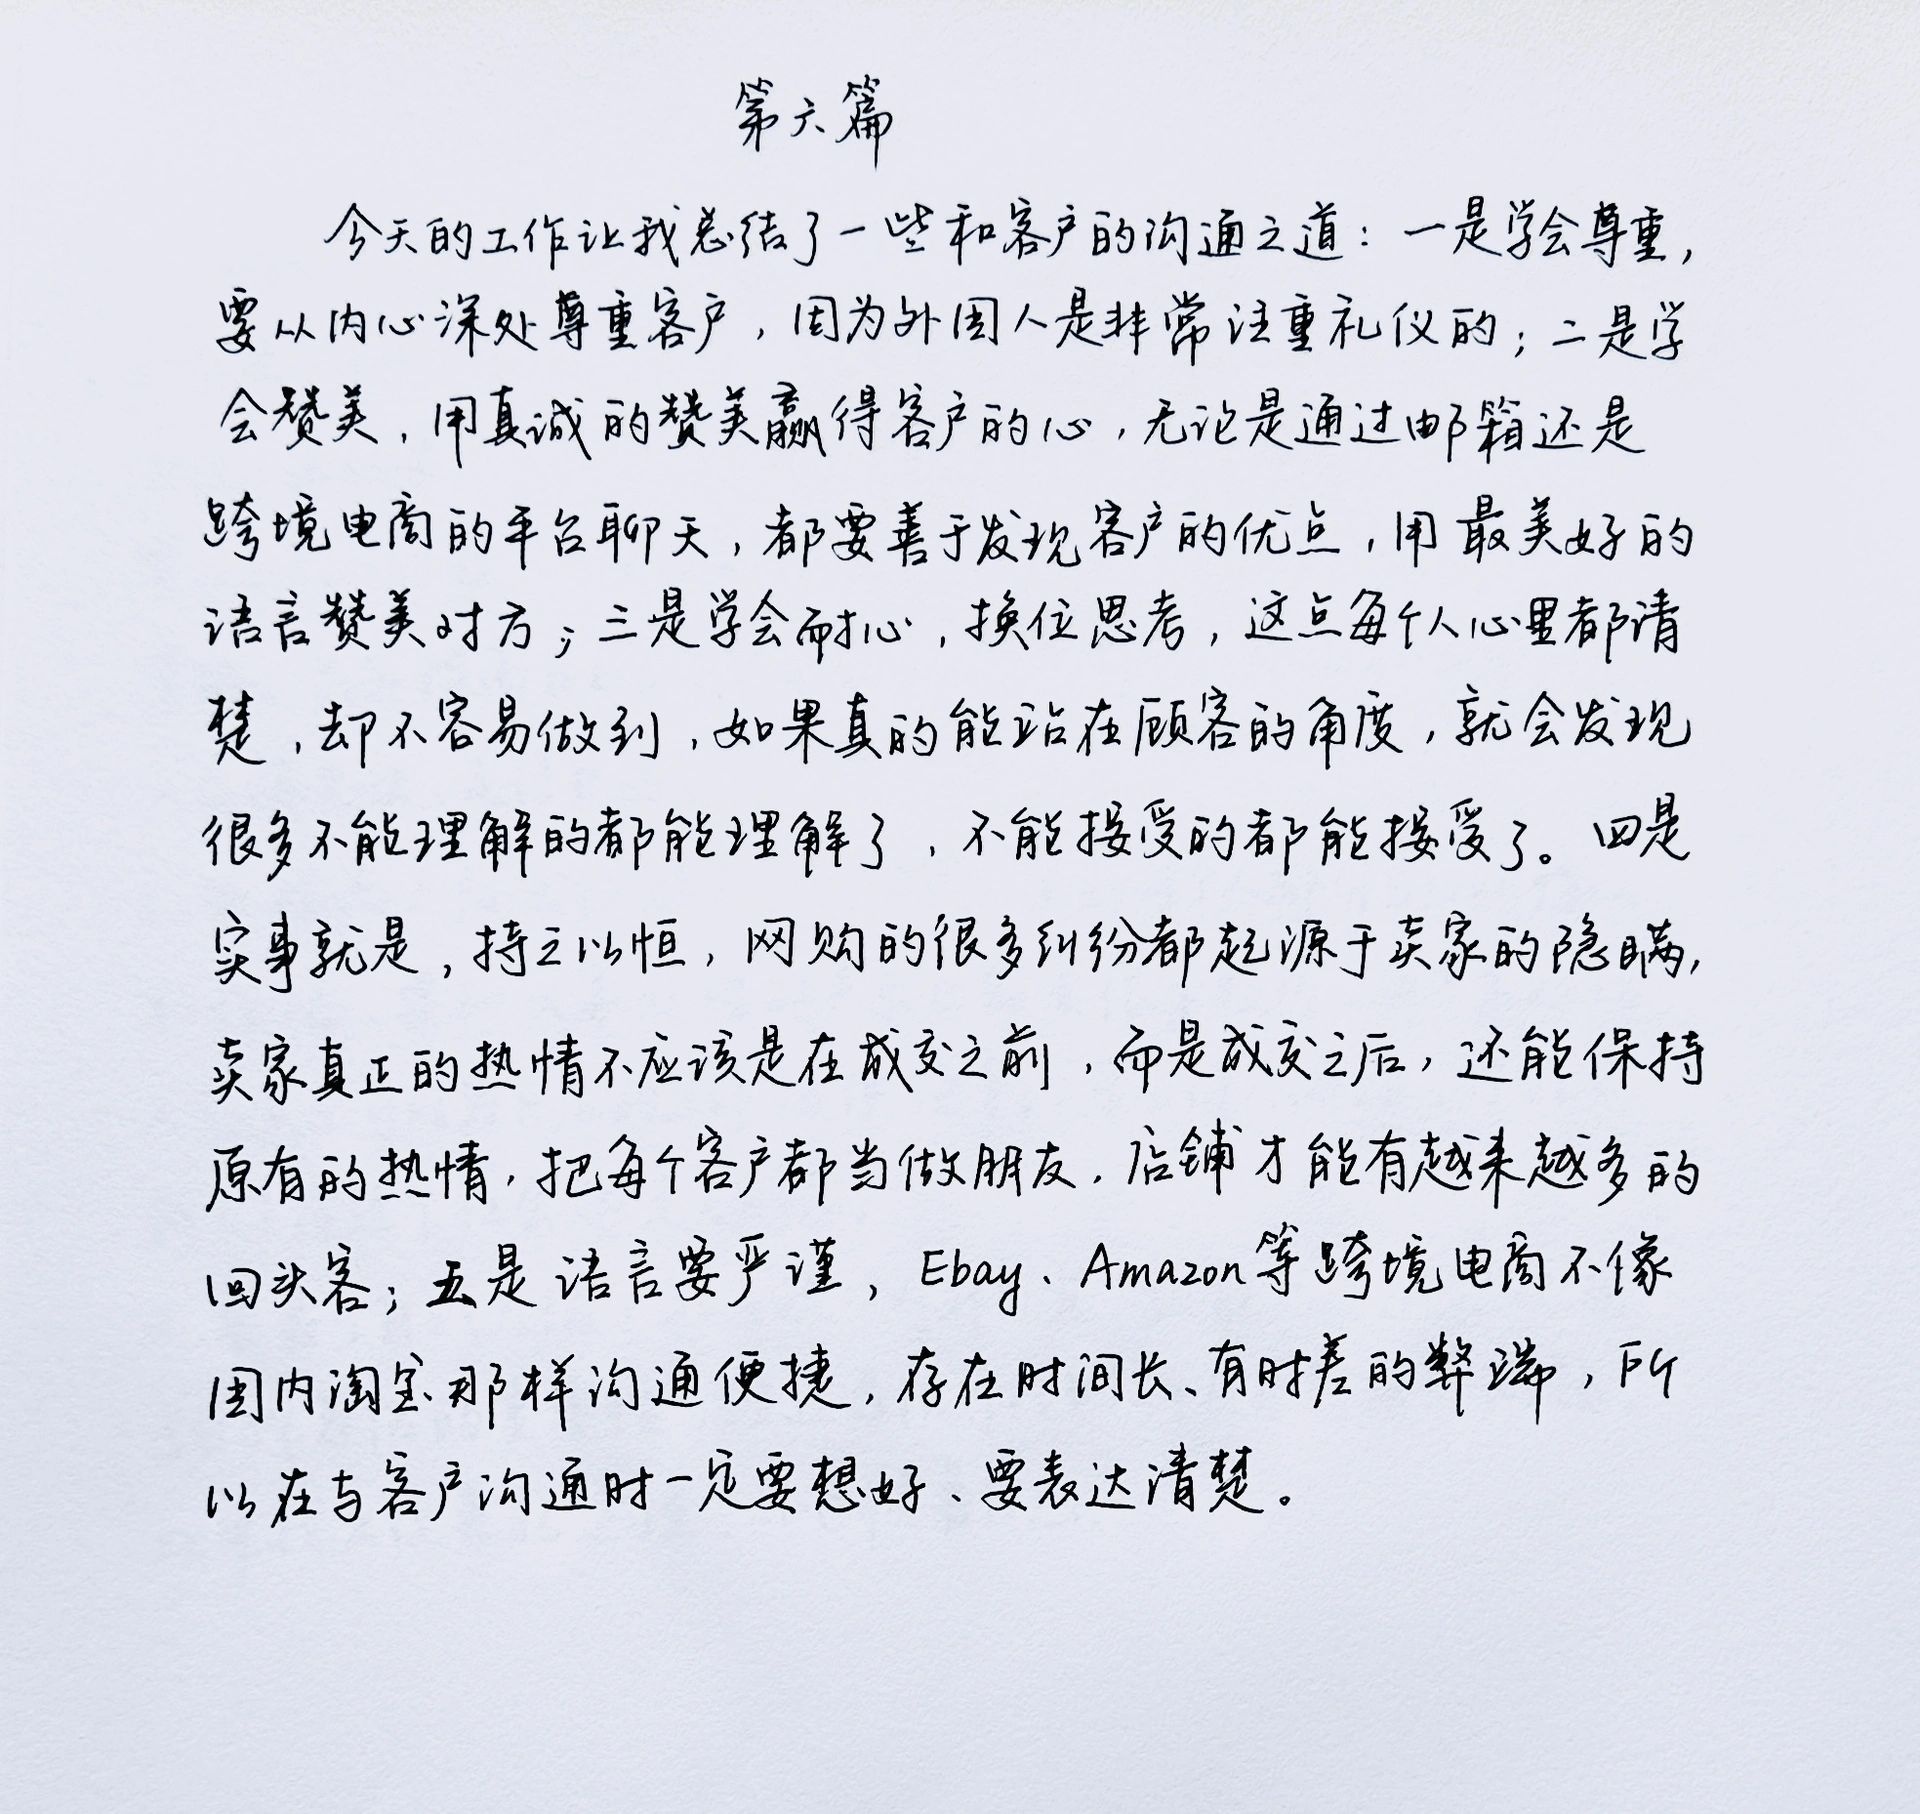 第六篇
今天的工作让我总结了一些和客户的沟通之道：一是学会尊重，
要从内心深处尊重客户，因为外国人是非常注重礼仪的；二是学
会赞美，用真诚的赞美赢得客户的心，无论是通过邮箱还是
跨境电商的平台聊天，都要善于发现客户的优点，用最美好的
语言赞美对方；三是学会耐心，换位思考，这点每个人心里都清
楚，却不容易做到，如果真的能站在顾客的角度，就会发现
很多不能理解的都能理解了，不能接受的都能接受了。四是
实事就是，持之以恒，网购的很多纠纷都起源于卖家的隐瞒，
卖家真正的热情不应该是在成交之前，而是成交之后，还能保持
原有的热情，把每个客户都当做朋友，店铺才能有越来越多的
回头客；五是语言要严谨，Ebay、Amazon等跨境电商不像
国内淘宝那样沟通便捷，存在时间长、有时差的弊端，所
以在与客户沟通时一定要想好、要表达清楚。